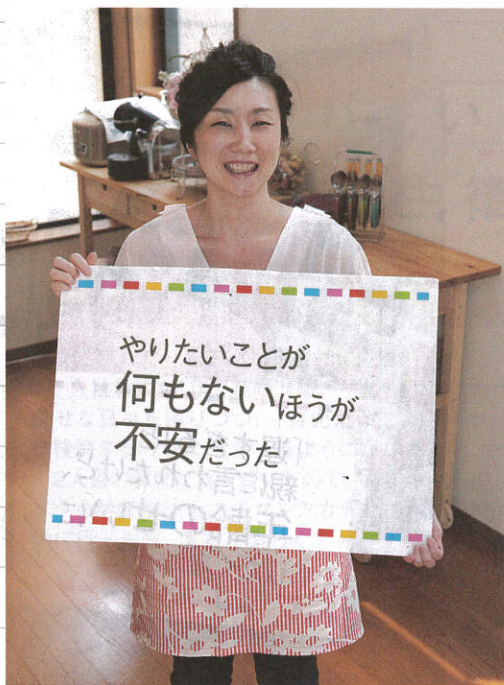 やりたいことが
何もないほうが
不安だった